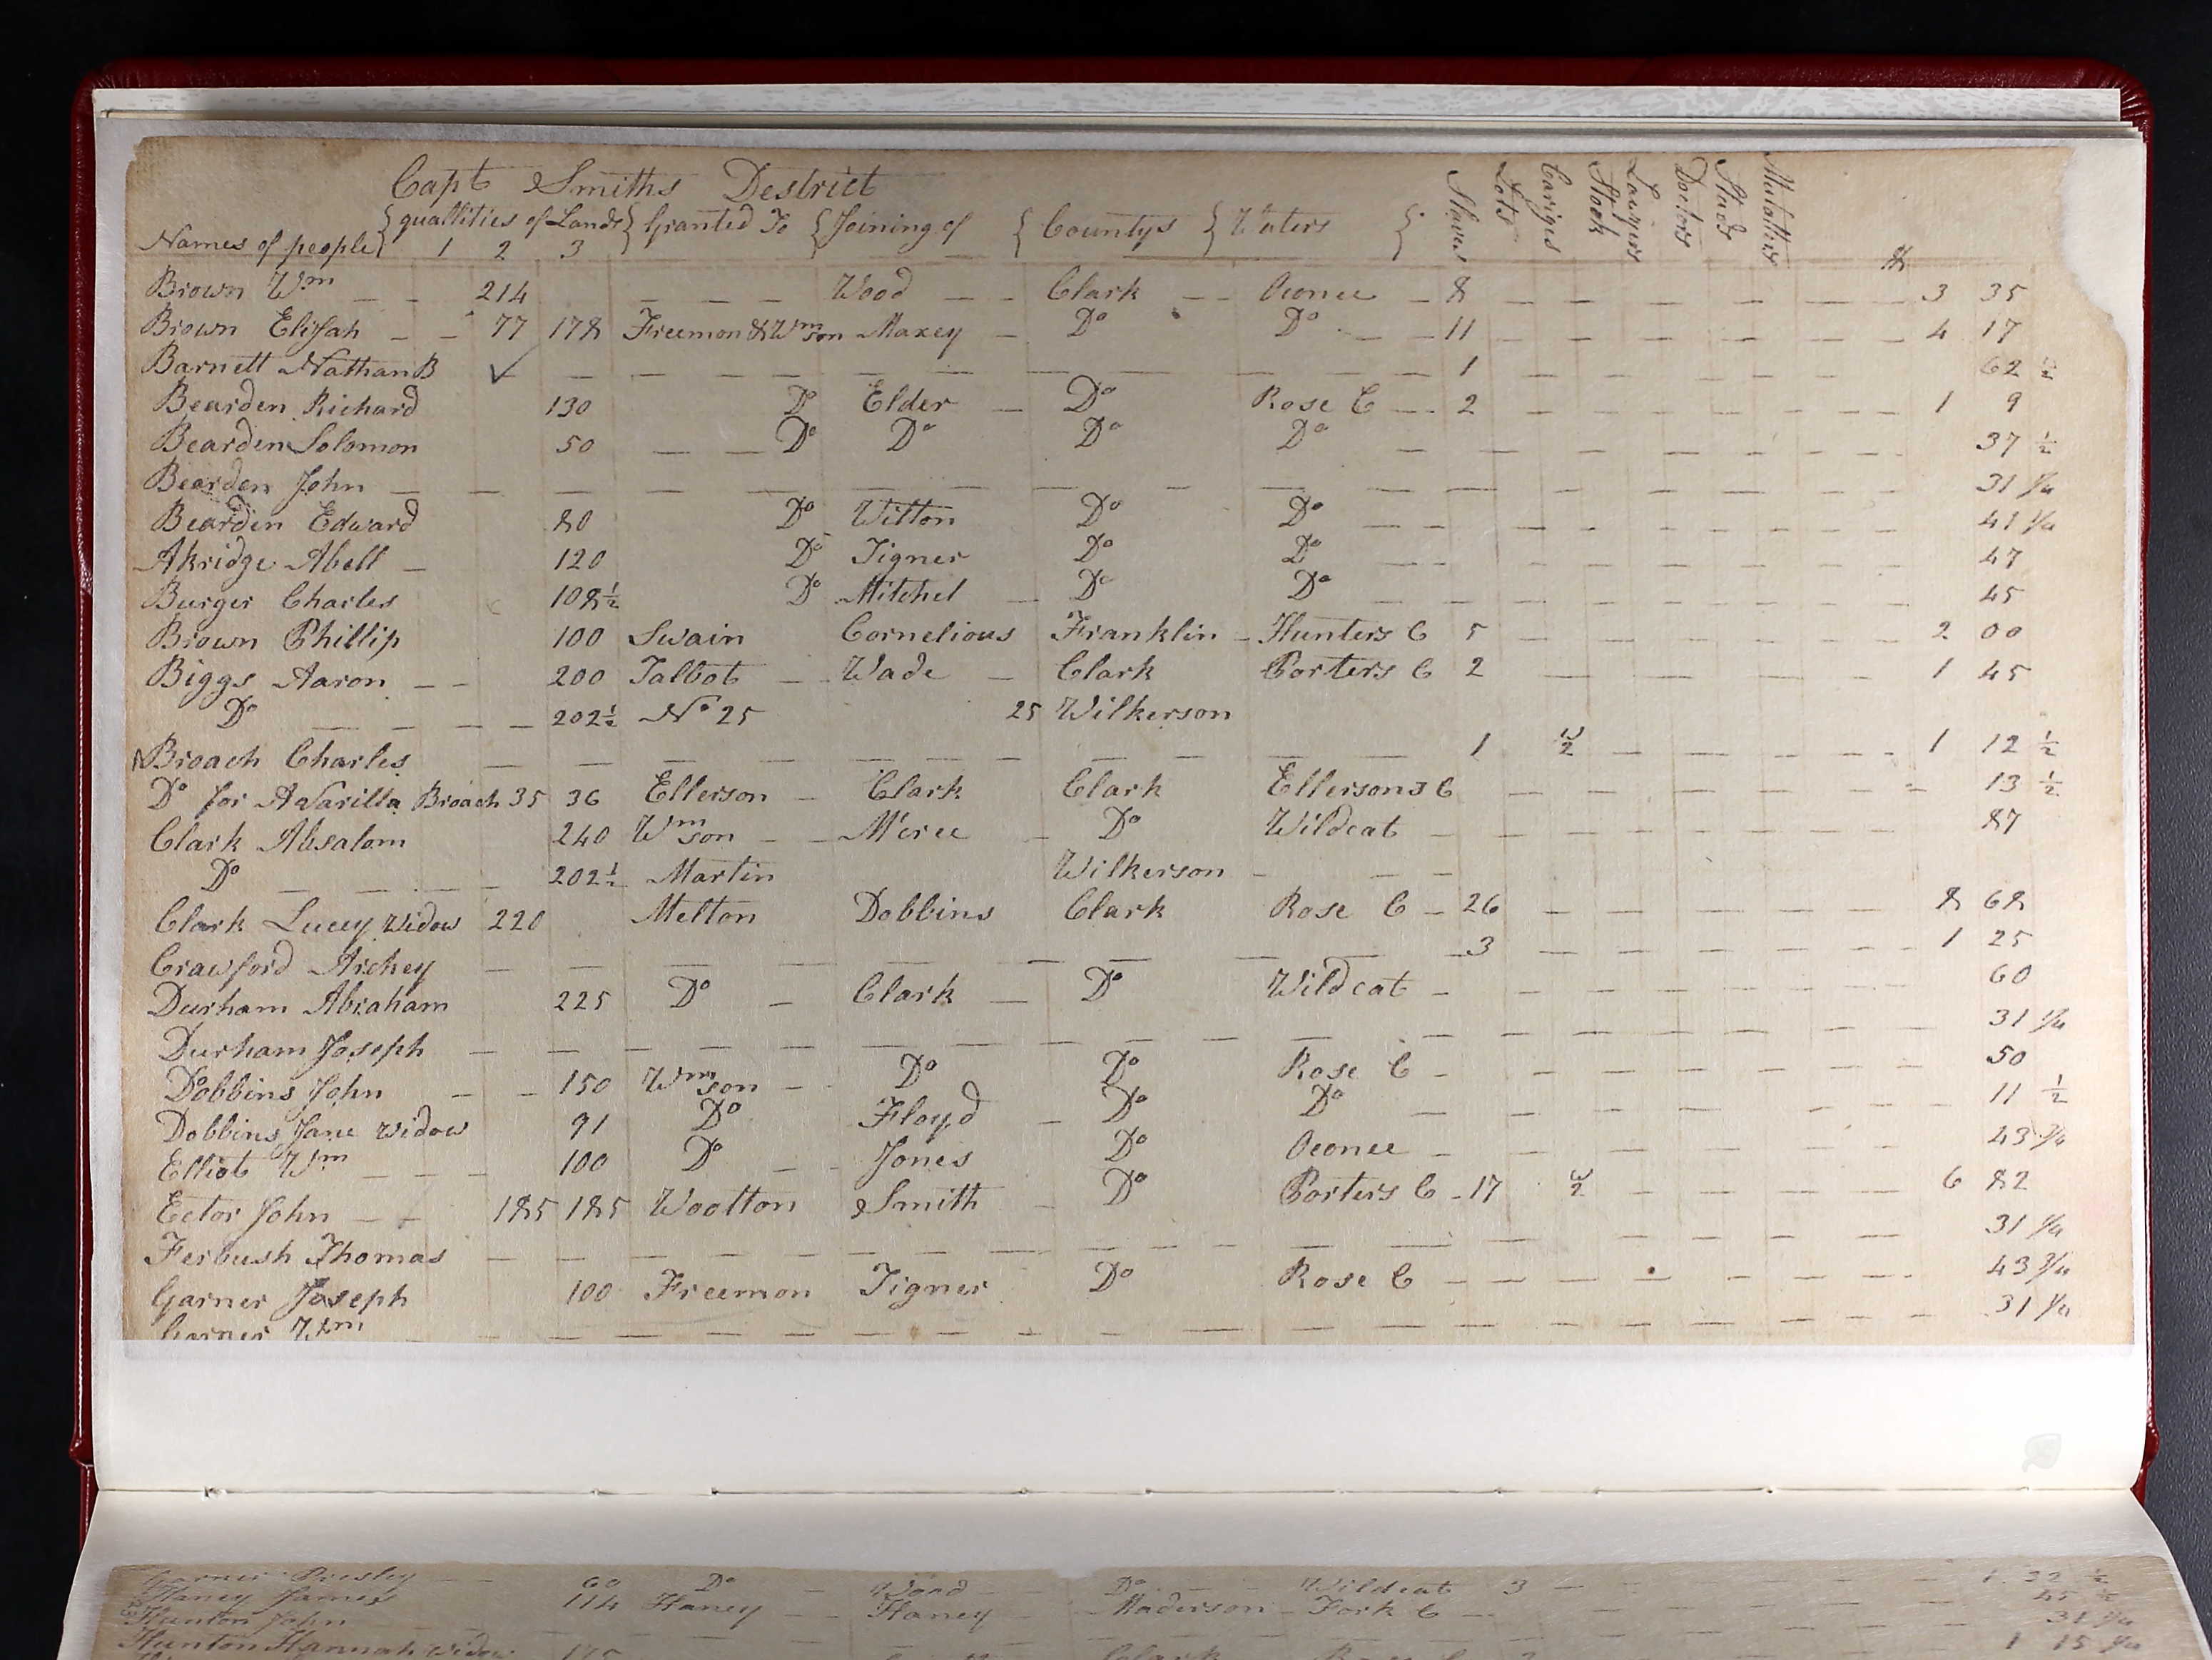 Capt Smiths Destrict
Names of people { quallities of Lands 1 2 3 } Granted To { Joining of { Countys { Waters { Slaves Lots Cariges Stock Lawyers Doctors Studs Mulatters
Brown Wm — — 214 — — — Wood — — Clark — — Oconee — 8 — — — — — — — 3 35
Brown Elijah — — 77 178 Freemon & Wmson Maxey — Do Do — — 11 — — — — — — — 4 17
Barnett Nathan B ✓ — — — — — — — — — — 1 — — — — — — 62 ½
Bearden Richard 130 Do Elder — Do Rose C — 2 — — — — — — 1 9
Bearden Solomon 50 — — Do Do Do Do — — — — — — — 37 ½
Bearden John — — — — — — — — — — — — — — — — 31 1/4
Bearden Edward 80 Do Witton Do Do — — — — — — — — 41 1/4
Akridge Abell — 120 Do Tigner Do Do — — — — — — — — 47
Burger Charles 108½ Do Mitchel — Do Do — — — — — — — — 45
Brown Phillip 100 Swain Cornelious Franklin — Hunters C 5 — — — — — — 2 00
Biggs Aaron — — 200 Talbot — Wade — Clark Porters C 2 — — — — — — 1 45
Do — — — — 202½ No 25 25 Wilkerson
Broach Charles — — — — — — — — — — 1 W/2 — — — — — 1 12 ½
Do for Avarilla Broach 35 36 Ellerson — Clark Clark Ellersons C — — — — — — — 13 ½
Clark Absalom 240 Wmson — — Mcree — Do Wildcat — — — — — — — — 87
Do — — — — 202½ Martin Wilkerson — — —
Clark Lucey Widow 220 Melton Dobbins Clark Rose C — 26 — — — — — — 8 68
Crawford Archey — — — — — — — — — 3 — — — — — — — 1 25
Durham Abraham 225 Do — Clark — Do Wildcat — — — — — — — 60
Durham Joseph — — — — — — — — — — — — — — — — 31 1/4
Dobbins John — — 150 Wmson — Do Do Rose C — — — — — — — 50
Dobbins Jane Widow 91 Do Floyd — Do Do — — — — — — — 11 ½
Elliot Wm — — — 100 Do — — Jones Do Oconee — — — — — — — 43 3/4
Ector John — — 185 185 Wootton Smith — Do Porters C — 17 W/2 — — — — — 6 82
Ferbush Thomas — — — — — — — — — — — — — — — — 31 1/4
Garner Joseph 100 Freemon Tigner Do Rose C — — — — — — — — 43 3/4
Garner Wm — — — — — — — — — — — — — — — — 31 1/4
Garner Presley — — 60 Do — Wood Do — — Wildcat 3 — — — — — — 1 22 ½
Haney James 114 Haney — — Haney — Maderson — Fork C — — — — — — — 45 ½
Hunton John — — — — — — — — — — — — — — — — 31 1/4
Hunton Hannah Widow Clark 1 15 1/4